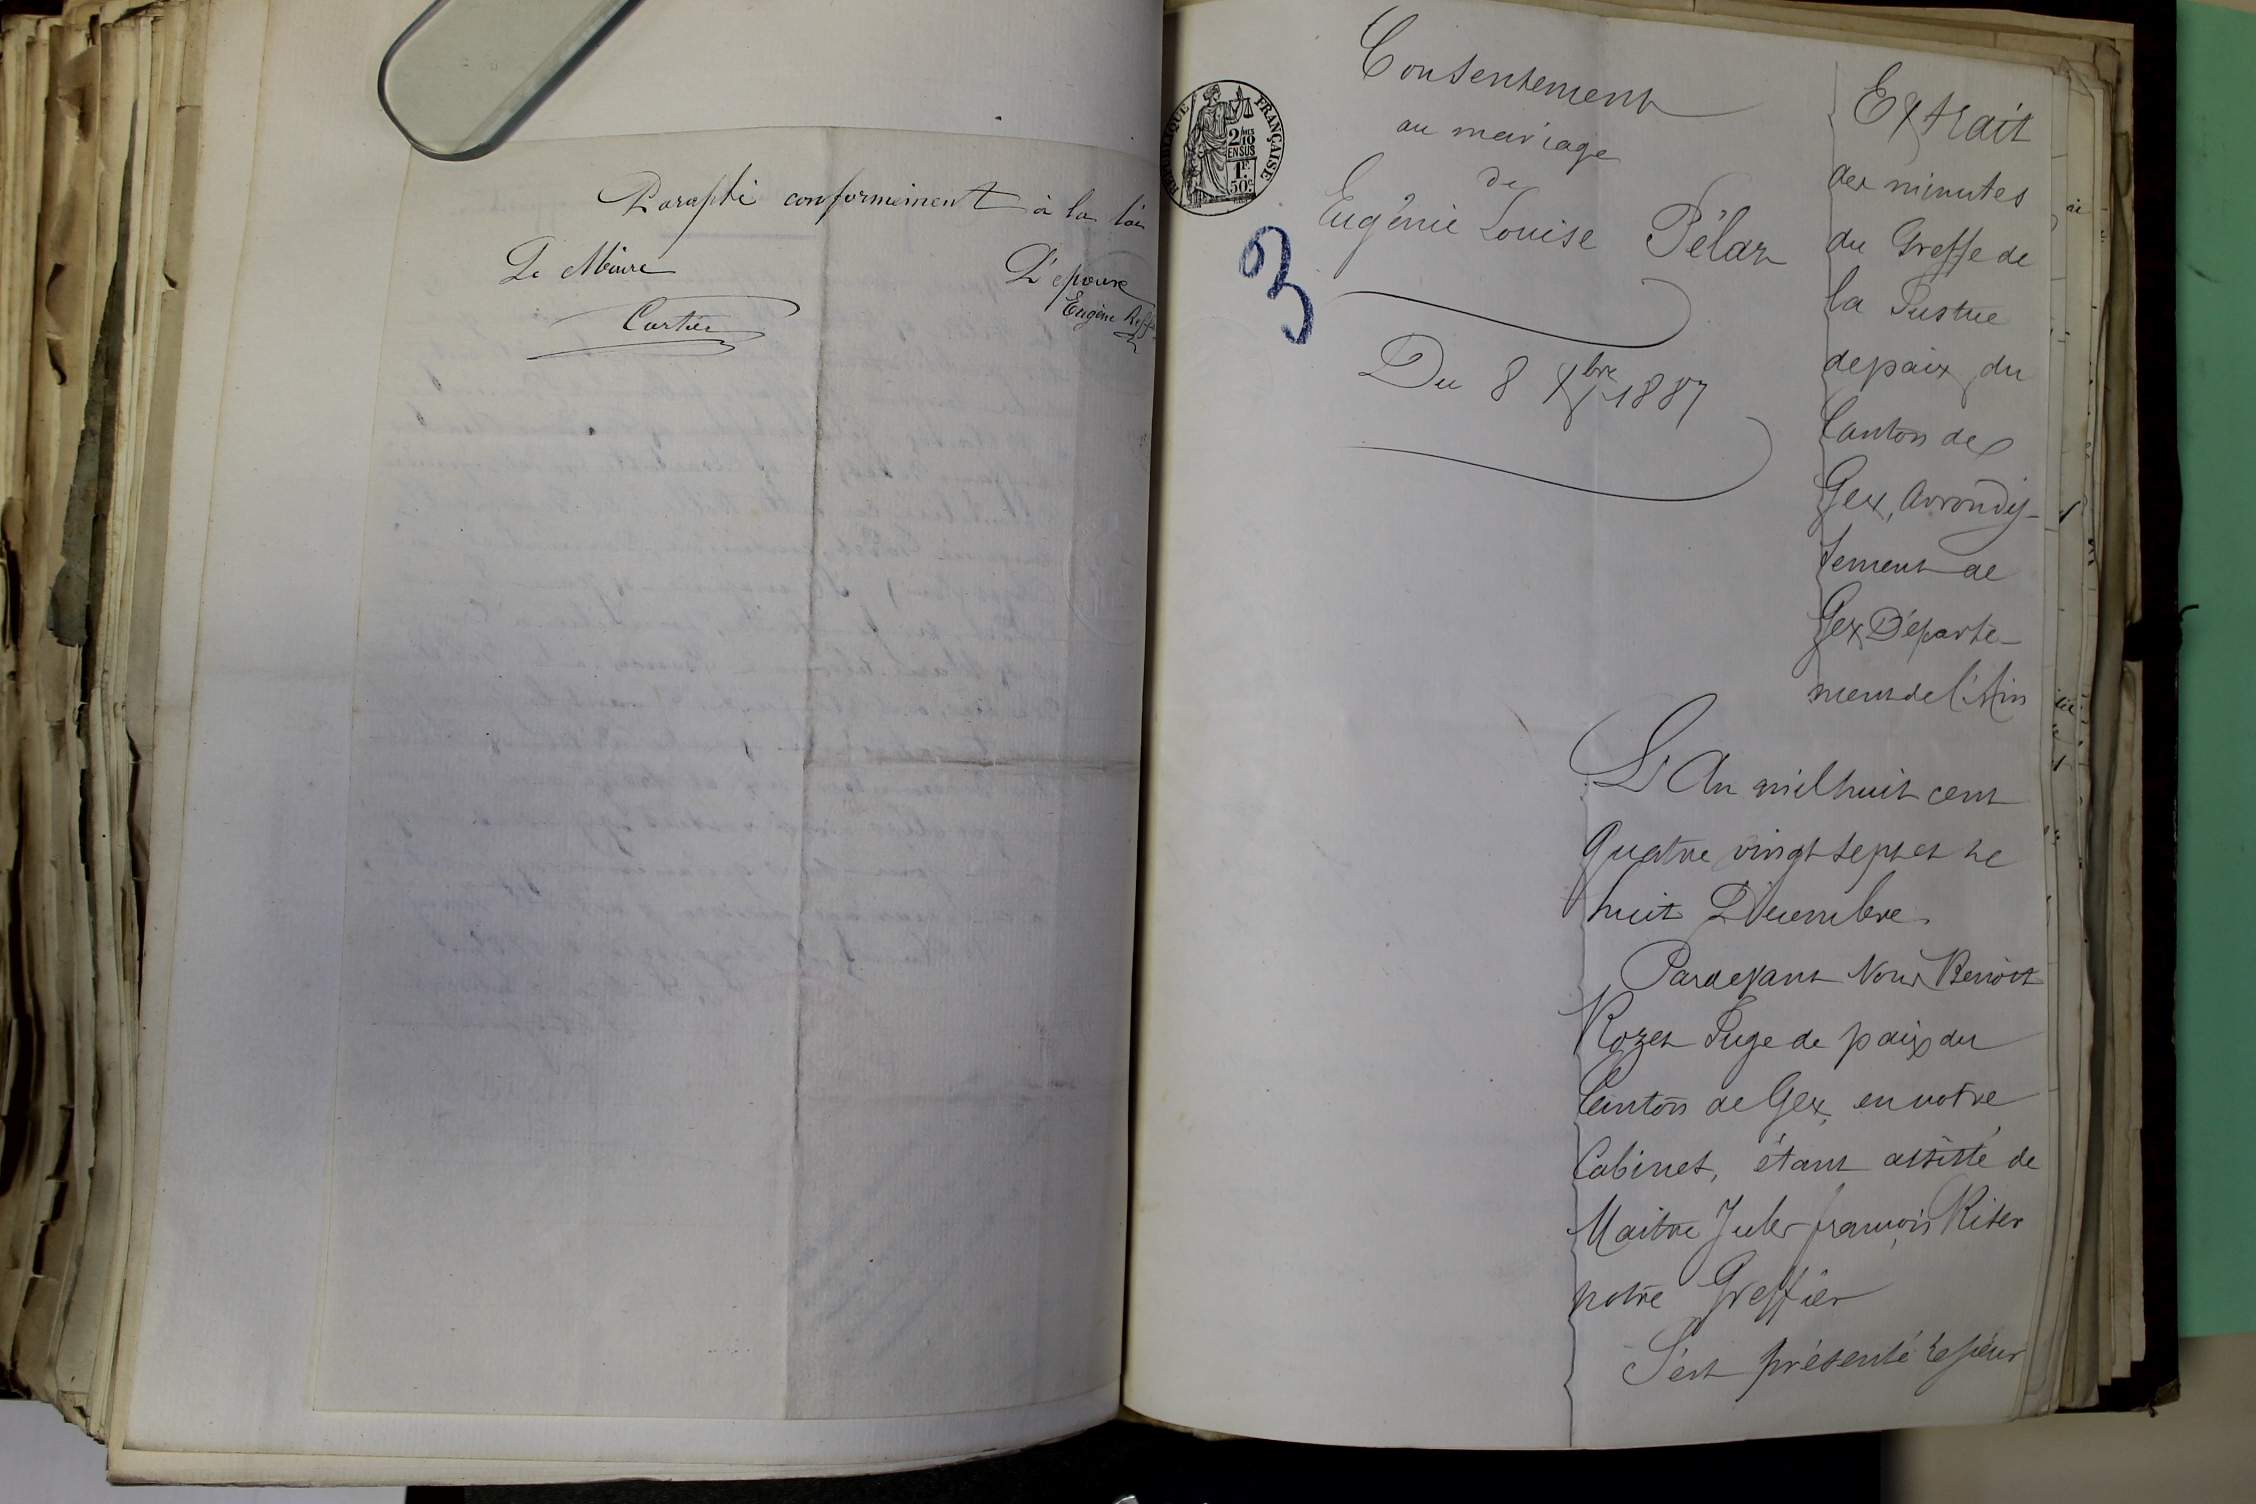 Paraphé conformément à la loi
Le Maire
L'épouse
Cartier
Eugène
RÉPUBLIQUE FRANÇAISE
2/10
EN SUS
1F.
50c
3
Consentement
au mariage
de
Eugénie Louise Pélaz
Du 8 Xbre 1887
Extrait
des minutes
du Greffe de
la Justice
de paix du
Canton de
Gex, Arrondis-
sement de
Gex Départe-
ment de l'Ain
L'An mil huit cent
quatre vingt sept et le
huit Décembre.
Pardevant Nous Benoit
Rozet Juge de paix du
Canton de Gex, en notre
Cabinet, étant assisté de
Maitre Jules françois Riter
notre Greffier
S'est présenté le sieur